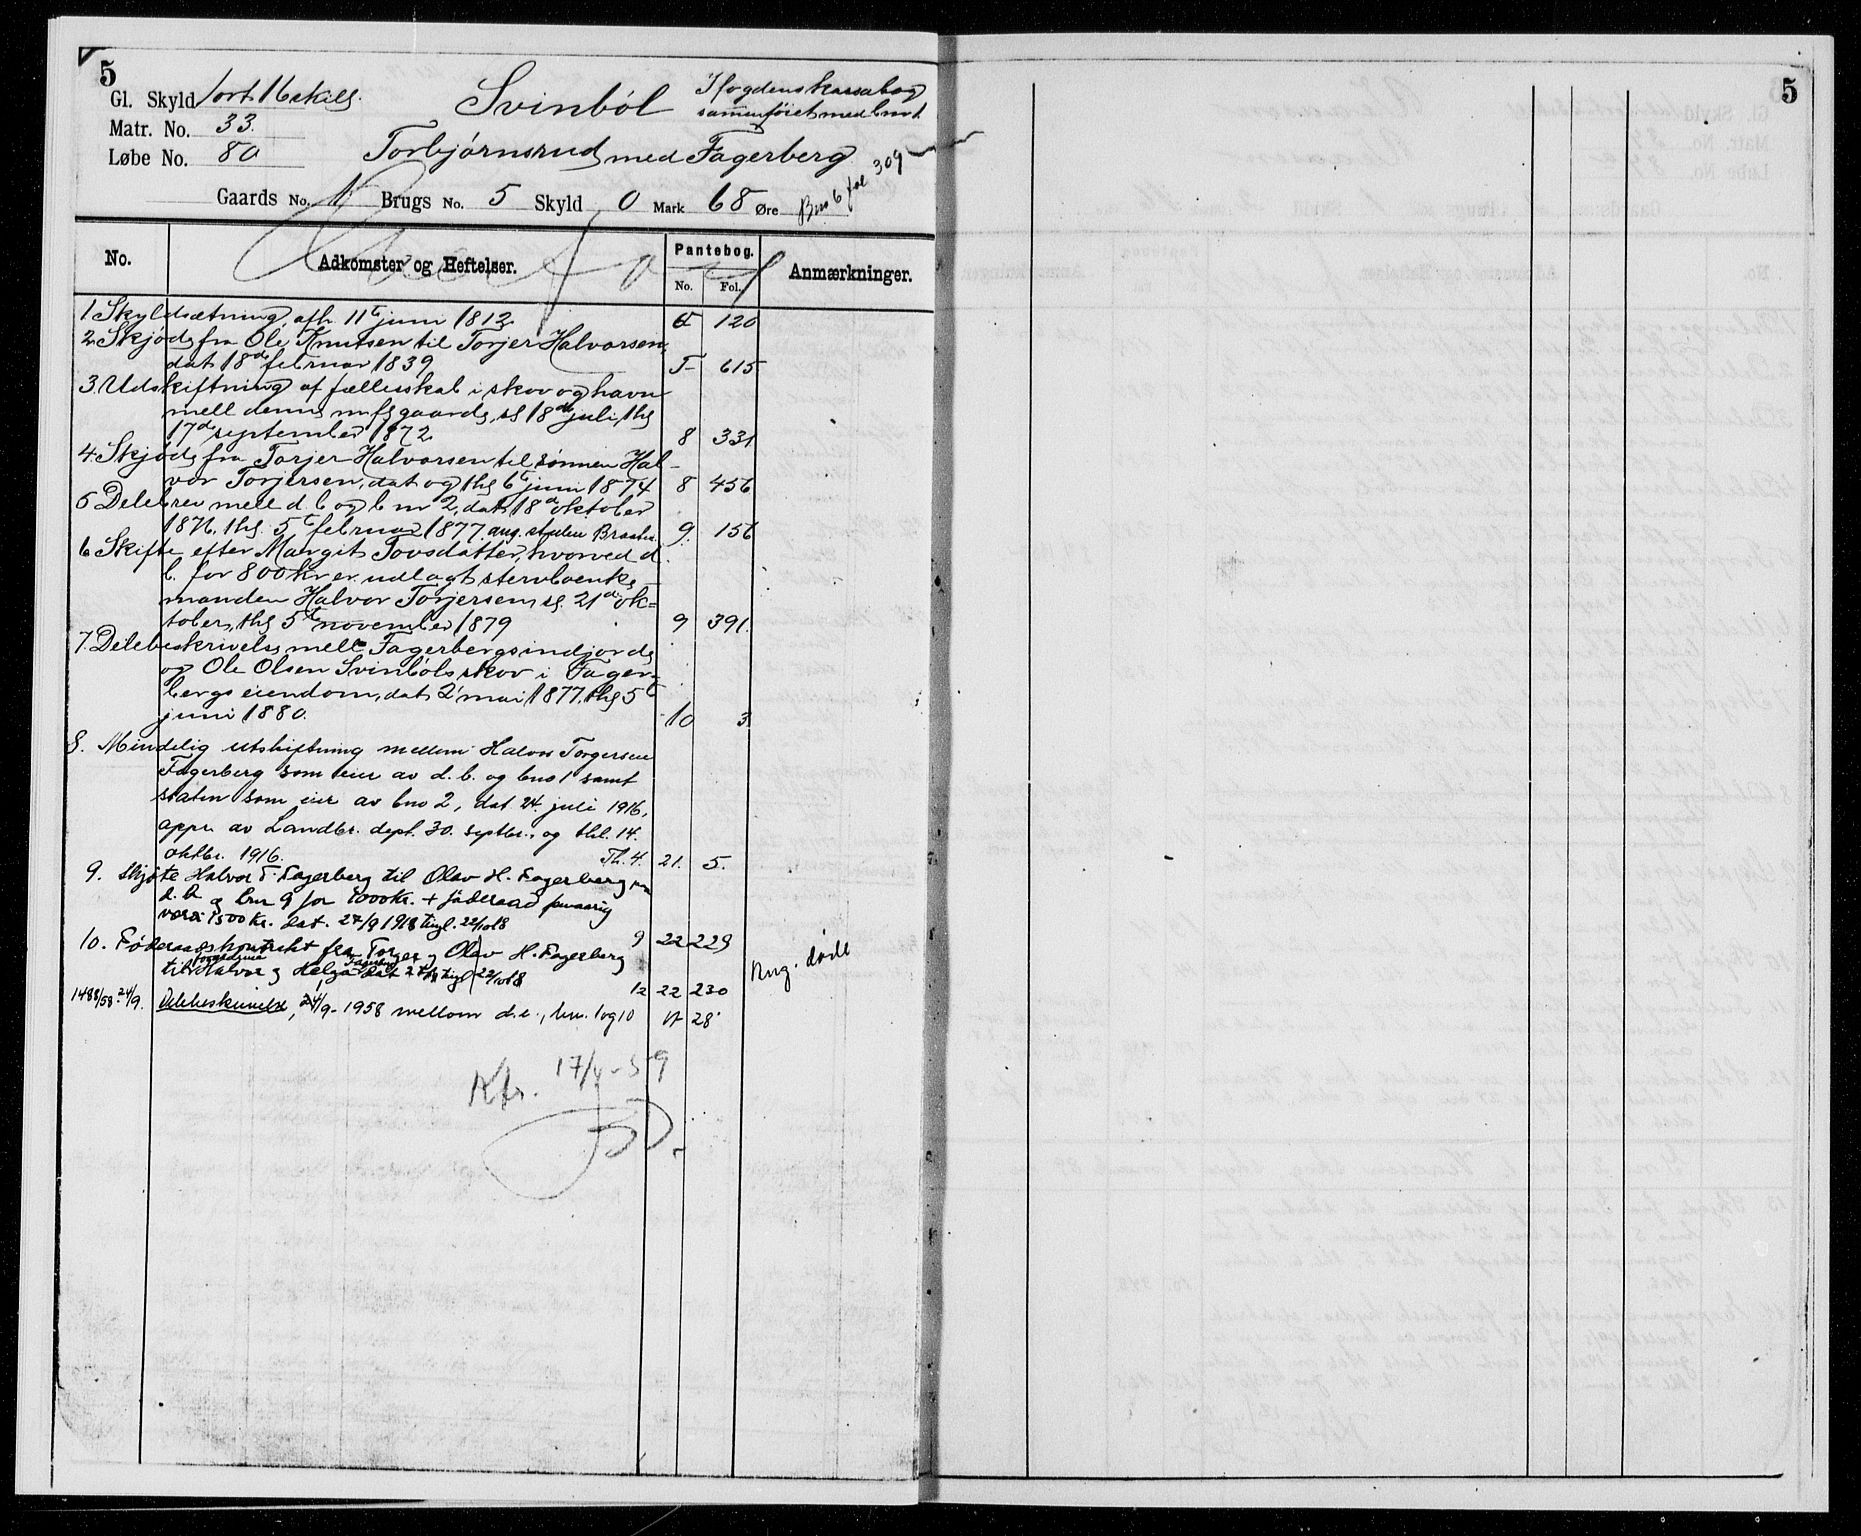 5
Gl. Skyld 1 ort 16 skill.
Matr. No. 33.
Løbe No. 80
Svinböl
I fogdens kassabog
sammenföiet med bno 1
Torbjørnsrud med Fagerberg
Bno 6 fol 309
Gaards No. 1 Brugs No. 5 Skyld 0 Mark 68 Øre
No. Adkomster og Heftelser. Pantebog. Anmærkninger.
No. Fol.
1 Skyldsætning, afh 11t juni 1812 G 120
2 Skjøde fra Ole Knutsen til Torjer Halvorsen,
dat 18de februar 1839 J 615
3. Udskiftning af fælleskab i skov og havn
mell denne m fl gaarde, sl 18de juli, thl
17d september 1872 8 331
4. Skjøde fra Torjer Halvorsen til sönnen Hal-
vor Torjersen, dat og thl 6t juni 1874 8 456
5 Delebrev mell d. b og b nr 2, dat 18d oktober
1876, thl. 5t februar 1877. ang. stydelen Braaten. 9. 156
6 Skifte efter Margit Tovsdatter, hvorved d
b. for 800 kr er udlagt stervboenke
manden Halvor Torjersen, sl. 21d ok=
tober, thl 5t november 1879 9 391.
7. Delebeskrivelse mell Fagerbergs indjorde
og Ole Olsen Svinböls skov i Fager-
bergs eiendom, dat 2' mai 1877, thl 5t
juni 1880. 10 3
8. Mindelig utskiftning mellem Halvor Torgersen
Fagerberg som eier av d. b. og bno 1 samt
staten som eier av bno 2, dat 24. juli 1916,
appr. av Landbr. dept. 30. septbr., og thl. 14.
oktbr. 1916. Th. 4. 21. 5.
9. Skjøte Halvor T. Fagerberg til Olav H. Fagerberg paa
d. b og bnr 9 for 1000 kr. + föderaad femaarig
værdi 1500 kr. dat. 27/9 1918 tingl. 22/10 18 9 22 229
10. Föderaadskontrakt fra Torger og Olav H. Fagerberg
til Halvor og Helga Fagerberg dat 27/9 tingl 22/10 18 12 22 230
Ang. döde
1488/58-24/9. Delebeskrivelse, 24/9-1958 mellom d.e., bnr. 1 og 10 A 28
Kfr. 17/4-59
5